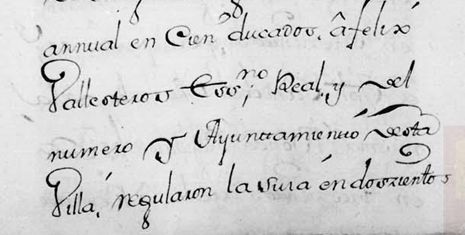 annual en Cien ducados, â felix
Vallesteros Ess.no Real, y del
numero y Ayunttamiento desta
Villa, regularon la suia én doszientos